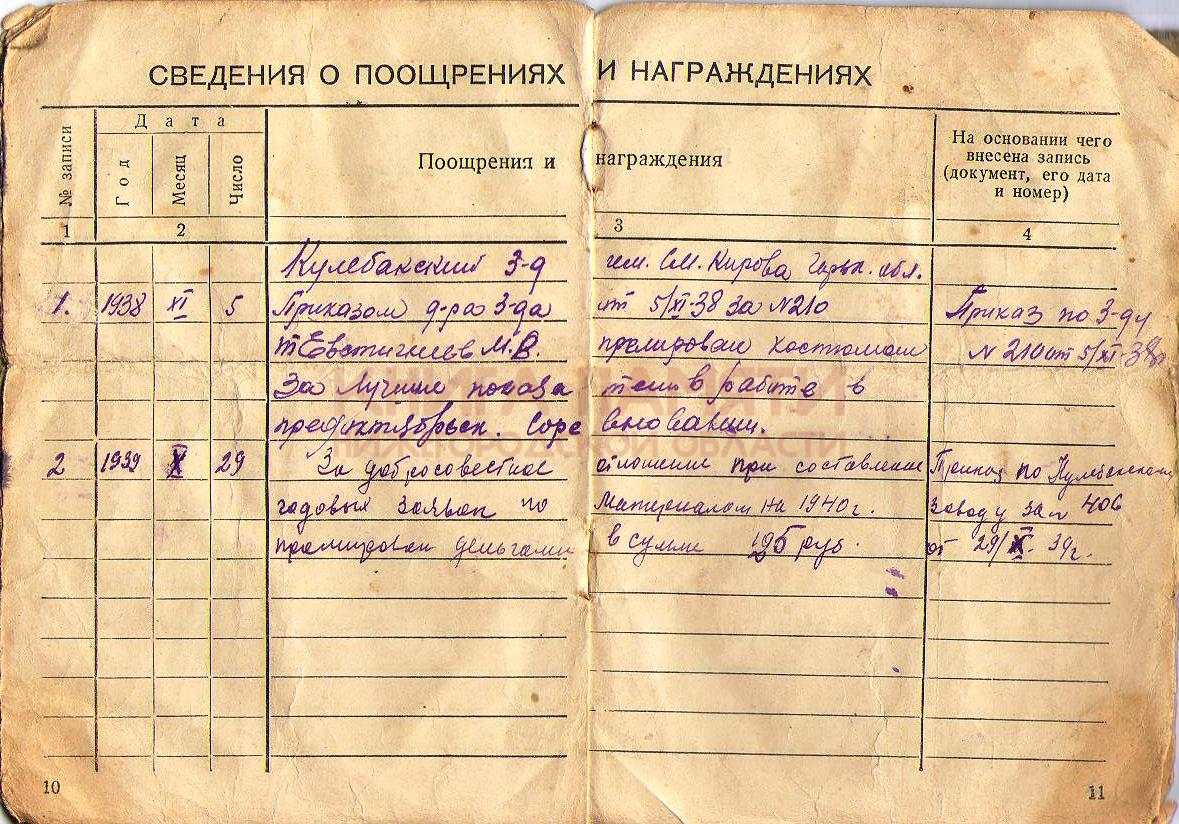 СВЕДЕНИЯ О ПООЩРЕНИЯХ И НАГРАЖДЕНИЯХ
№ записи
Дата
Год
Месяц
Число
Поощрения и награждения
На основании чего
внесена запись
(документ, его дата
и номер)
1 2 3 4
Кулебакский з-д им. С.М. Кирова Горьк. обл.
1. 1938 XI 5 Приказом д-ра з-да от 5/XI-38 за №210 Приказ по з-ду
т Евстигнеев М.В. премирован костюмом № 210 от 5/XI-38г
За лучшие показатели в работе в
предоктябрьск. соревновании.
2 1939 X 29 За добросовестное отношение при составлении Приказ по Кулебакскому
годовых заявок по материалам на 1940 г. заводу за № 406
премирован деньгами в сумме 125 руб. от 29/X. 39г.
КНИГА ПАМЯТИ
НИЖЕГОРОДСКОЙ ОБЛАСТИ
10
11